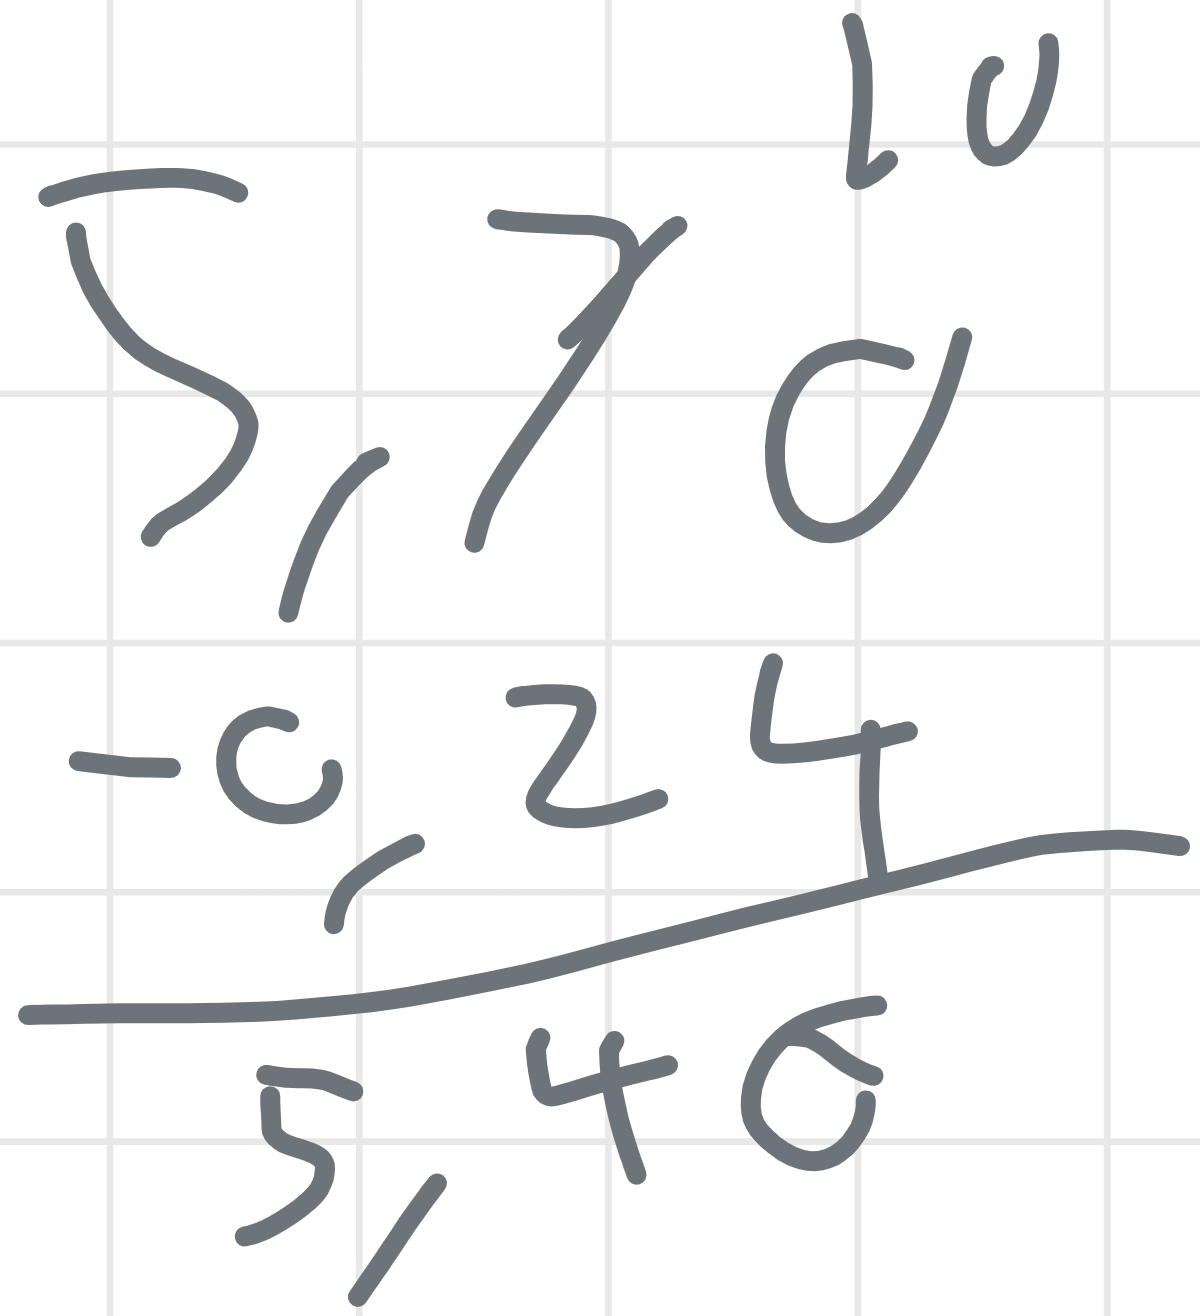 10
5,70
-0,24
5,46